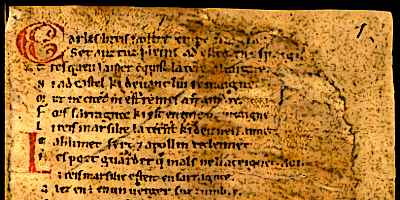 Carles li reis nostre emper
Set anz tuz pleins ad estet en Espaigne
Tresquen la mer cunquist la tere altaigne
Ni ad castel ki devant lui remaigne
Mur ne citet ni est remes a fraindre
Fors sarraguce ki est en une muntaigne
Li reis marsilie la tient ki deu nen aimet
Mahumet sert e apollin recleimet
Nes poet guarder q mals ne li ateignet Aoi
Li reis marsilie esteit en sarraguce
Alez en est en un verger suz lumbre